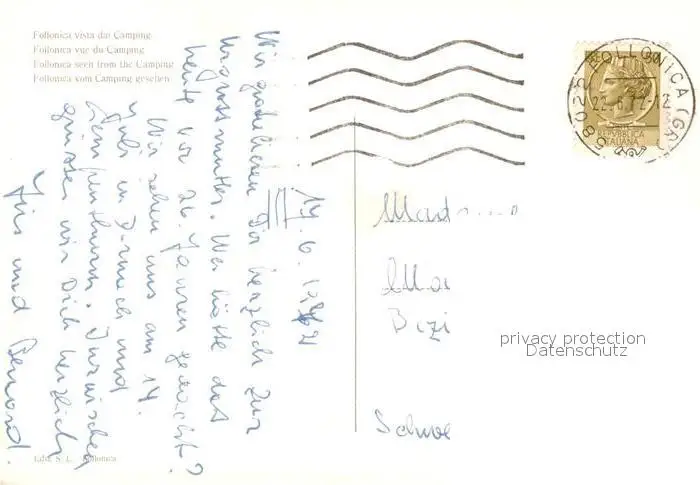 Follonica vista dai Camping
Follonica vue du Camping
Follonica seen from the Camping
Follonica vom Camping gesehen
Wir gratulieren Dir herzlich zur
Urgrossmutter. Wer hätte das
heute vor 26 Jahren gedacht?
Wir sehen uns am 14.
Juli in und
Inzwischen
grüssen wir Dich herzlich
Iris und Bernard.
19. 6.
Edit. S. L. Follonica
58022 FOLLONICA (GR)
22.-6.
REPVBBLICA
ITALIANA
Mad
Bizi
Schwe
privacy protection
Datenschutz